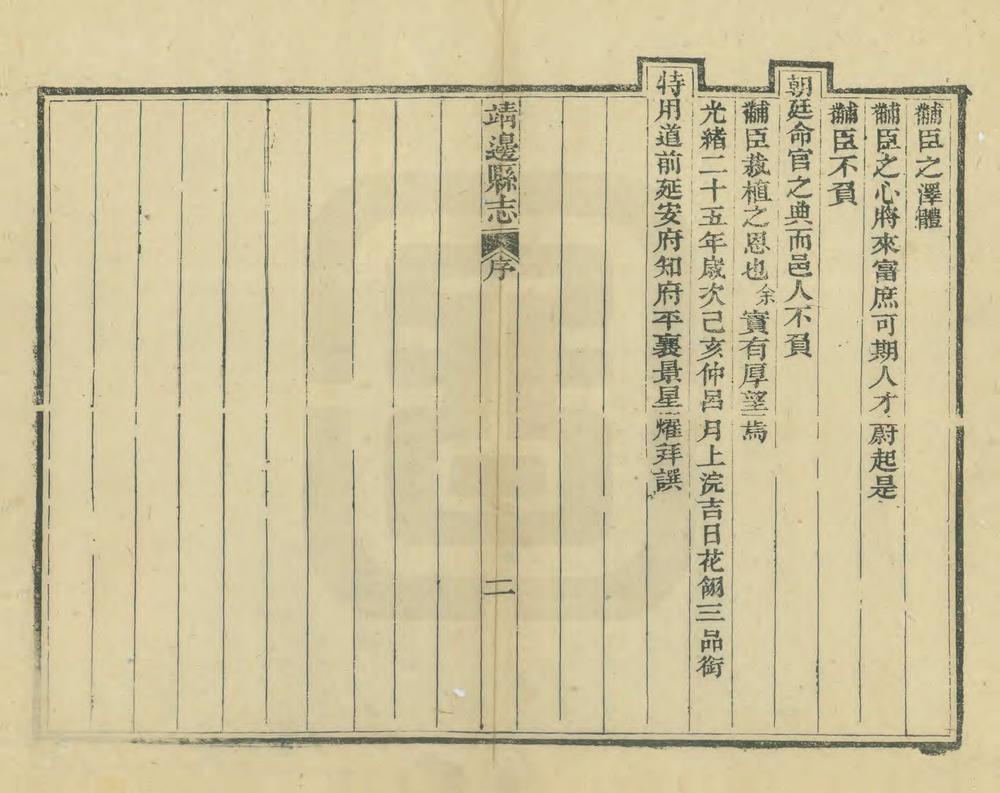 黼臣之澤體
黼臣之心將來富庶可期人才蔚起是
黼臣不負
朝廷命官之典而邑人不負
黼臣栽植之恩也余實有厚望焉
光緒二十五年歲次己亥仲呂月上浣吉日花翎三品銜
特用道前延安府知府平襄景星燿拜譔
靖邊縣志 序 二